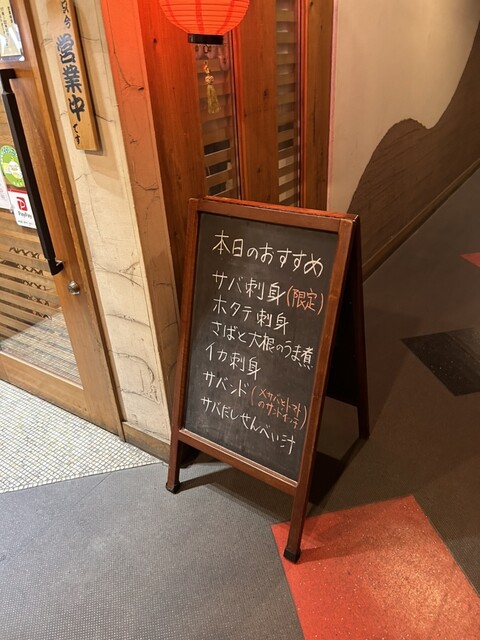 只今
営業中
です
PayPay
本日のおすすめ
サバ刺身(限定)
ホタテ刺身
さばと大根のうま煮
イカ刺身
サバンド(〆サバとトマト
のサンドイッチ)
サバだしせんべい汁